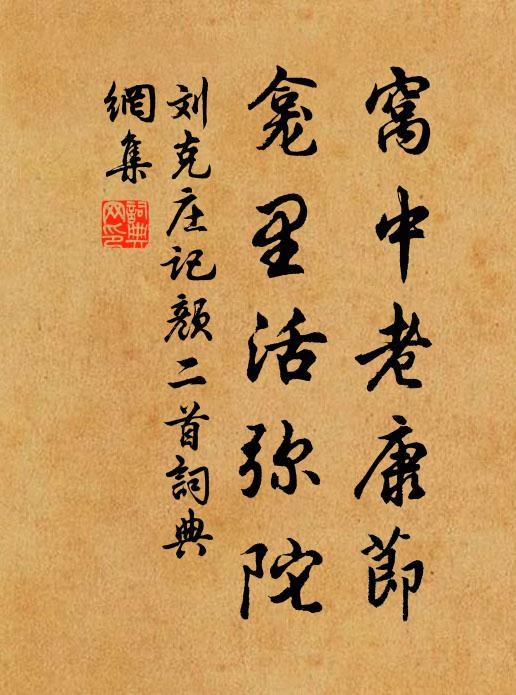 窩中老康節
龛里活弥陀
刘克庄记颜二首詞典
網集
詞典
网印